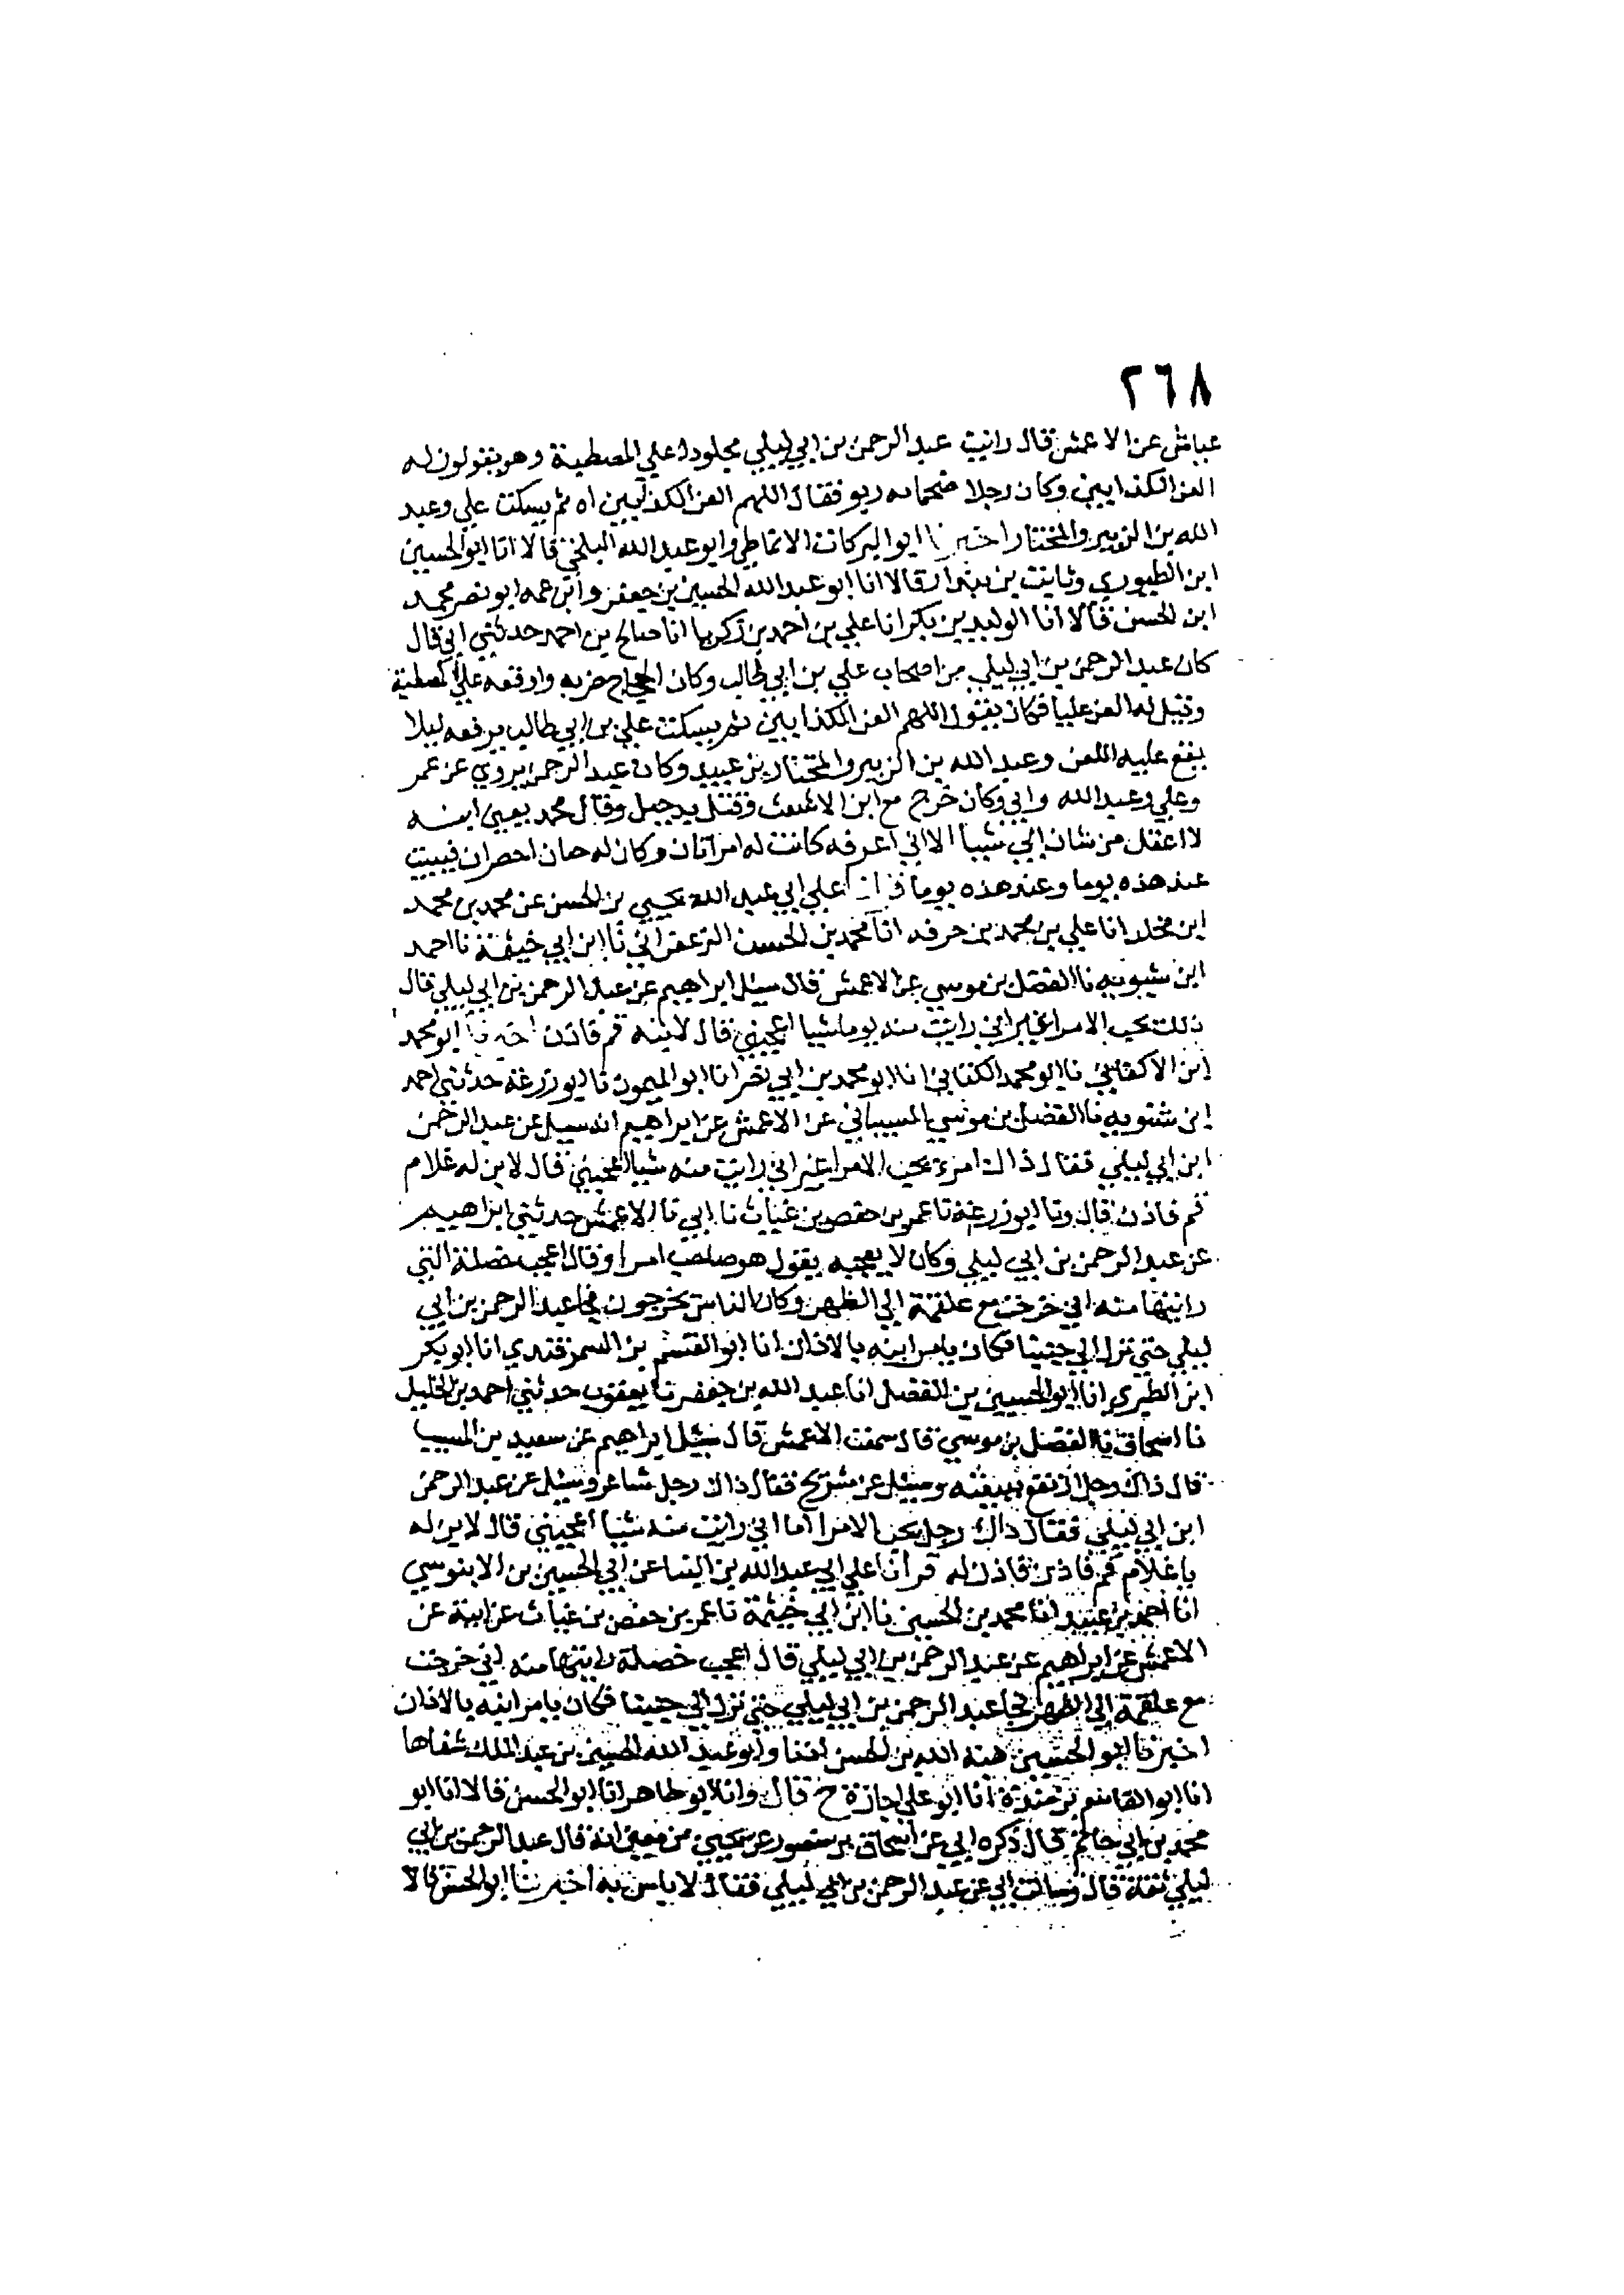 ٢٦٨
عياش عن الاعمش قال رايت عبد الرحمن بن ابي ليلي مجلودا علي المصطبة وهم يقولون له
العن الكذابين وكان رجلا ضخما به ربو فقال اللهم العن الكذابين اه ثم يسكت علي وعبد
الله بن الزبير والمختار اخبرنا ابو البركات الانماطي وابو عبد الله البلخي قالا انا ابو الحسين
ابن الطيوري وثابت بن بندار قالا انا ابو عبد الله الحسين بن جعفر وابن عمه ابو نصر محمد
ابن الحسن قالا انا الوليد بن بكر انا علي بن احمد بن زكريا انا صالح بن احمد حدثني ابي قال
كان عبد الرحمن بن ابي ليلي من اصحاب علي بن ابي طالب وكان الحجاج ضربه واوقفه علي المصطبة
وقيل له العن عليا فكان يقول اللهم العن الكذابين ثم يسكت علي بن ابي طالب يرفعه ليلا
يقع عليه اللعن وعبد الله بن الزبير والمختار بن عبيد وكان عبد الرحمن يروي عن عمر
وعلي وعبد الله وابي وكان خرج مع ابن الاشعث وقتل بدجيل وقال محمد يعني ابنه
لا اعقل من شان ابي شيا الا اني اعرفه كانت له امراتان وكان له حبان اخضران فيبيت
عند هذه يوما وعند هذه يوما قرات علي ابي عبد الله يحيي بن الحسن عن محمد بن محمد
ابن مخلد انا علي بن محمد بن خزفه انا محمد بن الحسن الزعفراني نا ابن ابي خيثمة نا احمد
ابن شبويه نا الفضل بن موسي عن الاعمش قال سئل ابراهيم عن عبد الرحمن بن ابي ليلي قال
ذلك يحب الامرا غير اني رايت منه يوما شيا اعجبني قال لابنه قم فاذن اخبرنا ابو محمد
ابن الاكفاني نا ابو محمد الكتاني انا ابو محمد بن ابي نصر انا ابو الميمون نا ابو زرعة حدثني احمد
ابن شبويه نا الفضل بن موسي السيباني عن الاعمش عن ابراهيم انه سيل عن عبد الرحمن
ابن ابي ليلي فقال ذاك امرؤ يحب الامرا غير اني رايت منه شيا اعجبني قال لابن له غلام
قم فاذن قال ونا ابو زرعة نا عمر بن حفص بن غياث نا ابي نا الاعمش حدثني ابراهيم
عن عبد الرحمن بن ابي ليلي وكان لا يعجبه يقول هو صاحب امرا وقال اعجب خصلة التي
رايتها منه اني خرجت مع علقمة الي الظهر وكان الناس يخرجون فجا عبد الرحمن بن ابي
ليلي حتي نزل الي جنبنا فكان يامر ابنه بالاذان انا ابو القسم بن السمرقندي انا ابو بكر
ابن الطبري انا ابو الحسين بن الفضل انا عبد الله بن جعفر نا يعقوب حدثني احمد بن الخليل
نا اسحاق نا الفضل بن موسي قال سمعت الاعمش قال سئل ابراهيم عن سعيد بن المسيب
قال ذاك رجل وسيل عن شريح فقال ذاك رجل شاعر وسئل عن عبد الرحمن
ابن ابي ليلي فقال ذاك رجل يحب الامرا اما اني رايت منه شيا اعجبني قال لابن له
يا غلام قم فاذن فاذن له قرانا علي ابي عبد الله بن البنا عن ابي الحسين بن الابنوسي
انا احمد بن عبيد انا محمد بن الحسين نا ابن ابي خيثمة نا عمر بن حفص بن غياث عن ابيه عن
الاعمش عن ابراهيم عن عبد الرحمن بن ابي ليلي قال اعجب خصلة رايتها منه اني خرجت
مع علقمة الي الظهر فجا عبد الرحمن بن ابي ليلي حتي نزل الي جنبنا فكان يامر ابنه بالاذان
اخبرنا ابو الحسين هبة الله بن الحسن اذنا وابو عبد الله الحسين بن عبد الملك شفاها
انا ابو القاسم بن مندة انا ابو علي اجازة ح قال وانا ابو طاهر انا ابو الحسن قالا انا ابو
محمد بن ابي حاتم قال ذكره ابي عن اسحاق بن منصور عن يحيي بن معين انه قال عبد الرحمن بن ابي
ليلي ثقة قال وسالت ابي عن عبد الرحمن بن ابي ليلي فقال لا باس به اخبرنا ابو الحسن قالا